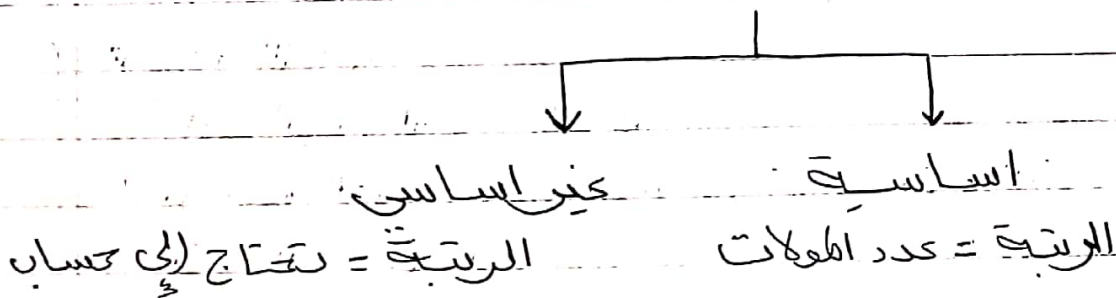 اساسية
غير اساسي
الرتبة = عدد المولات
الرتبة = تحتاج إلى حساب